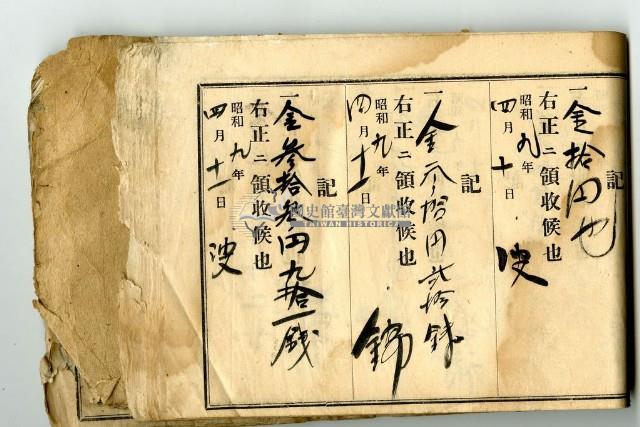 記
一金拾円也
右正ニ領收候也
昭和九年
四月十日
記
一金参拾円弐拾銭
右正ニ領收候也
昭和九年
四月十一日
記
一金参拾参円九拾一銭
右正ニ領收候也
昭和九年
四月十一日
國史館臺灣文獻館
TAIWAN HISTORICA